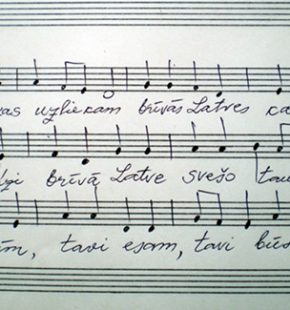 uzliekam brīvās Latves
brīvā Latve svešo
tavi esam, tavi būs